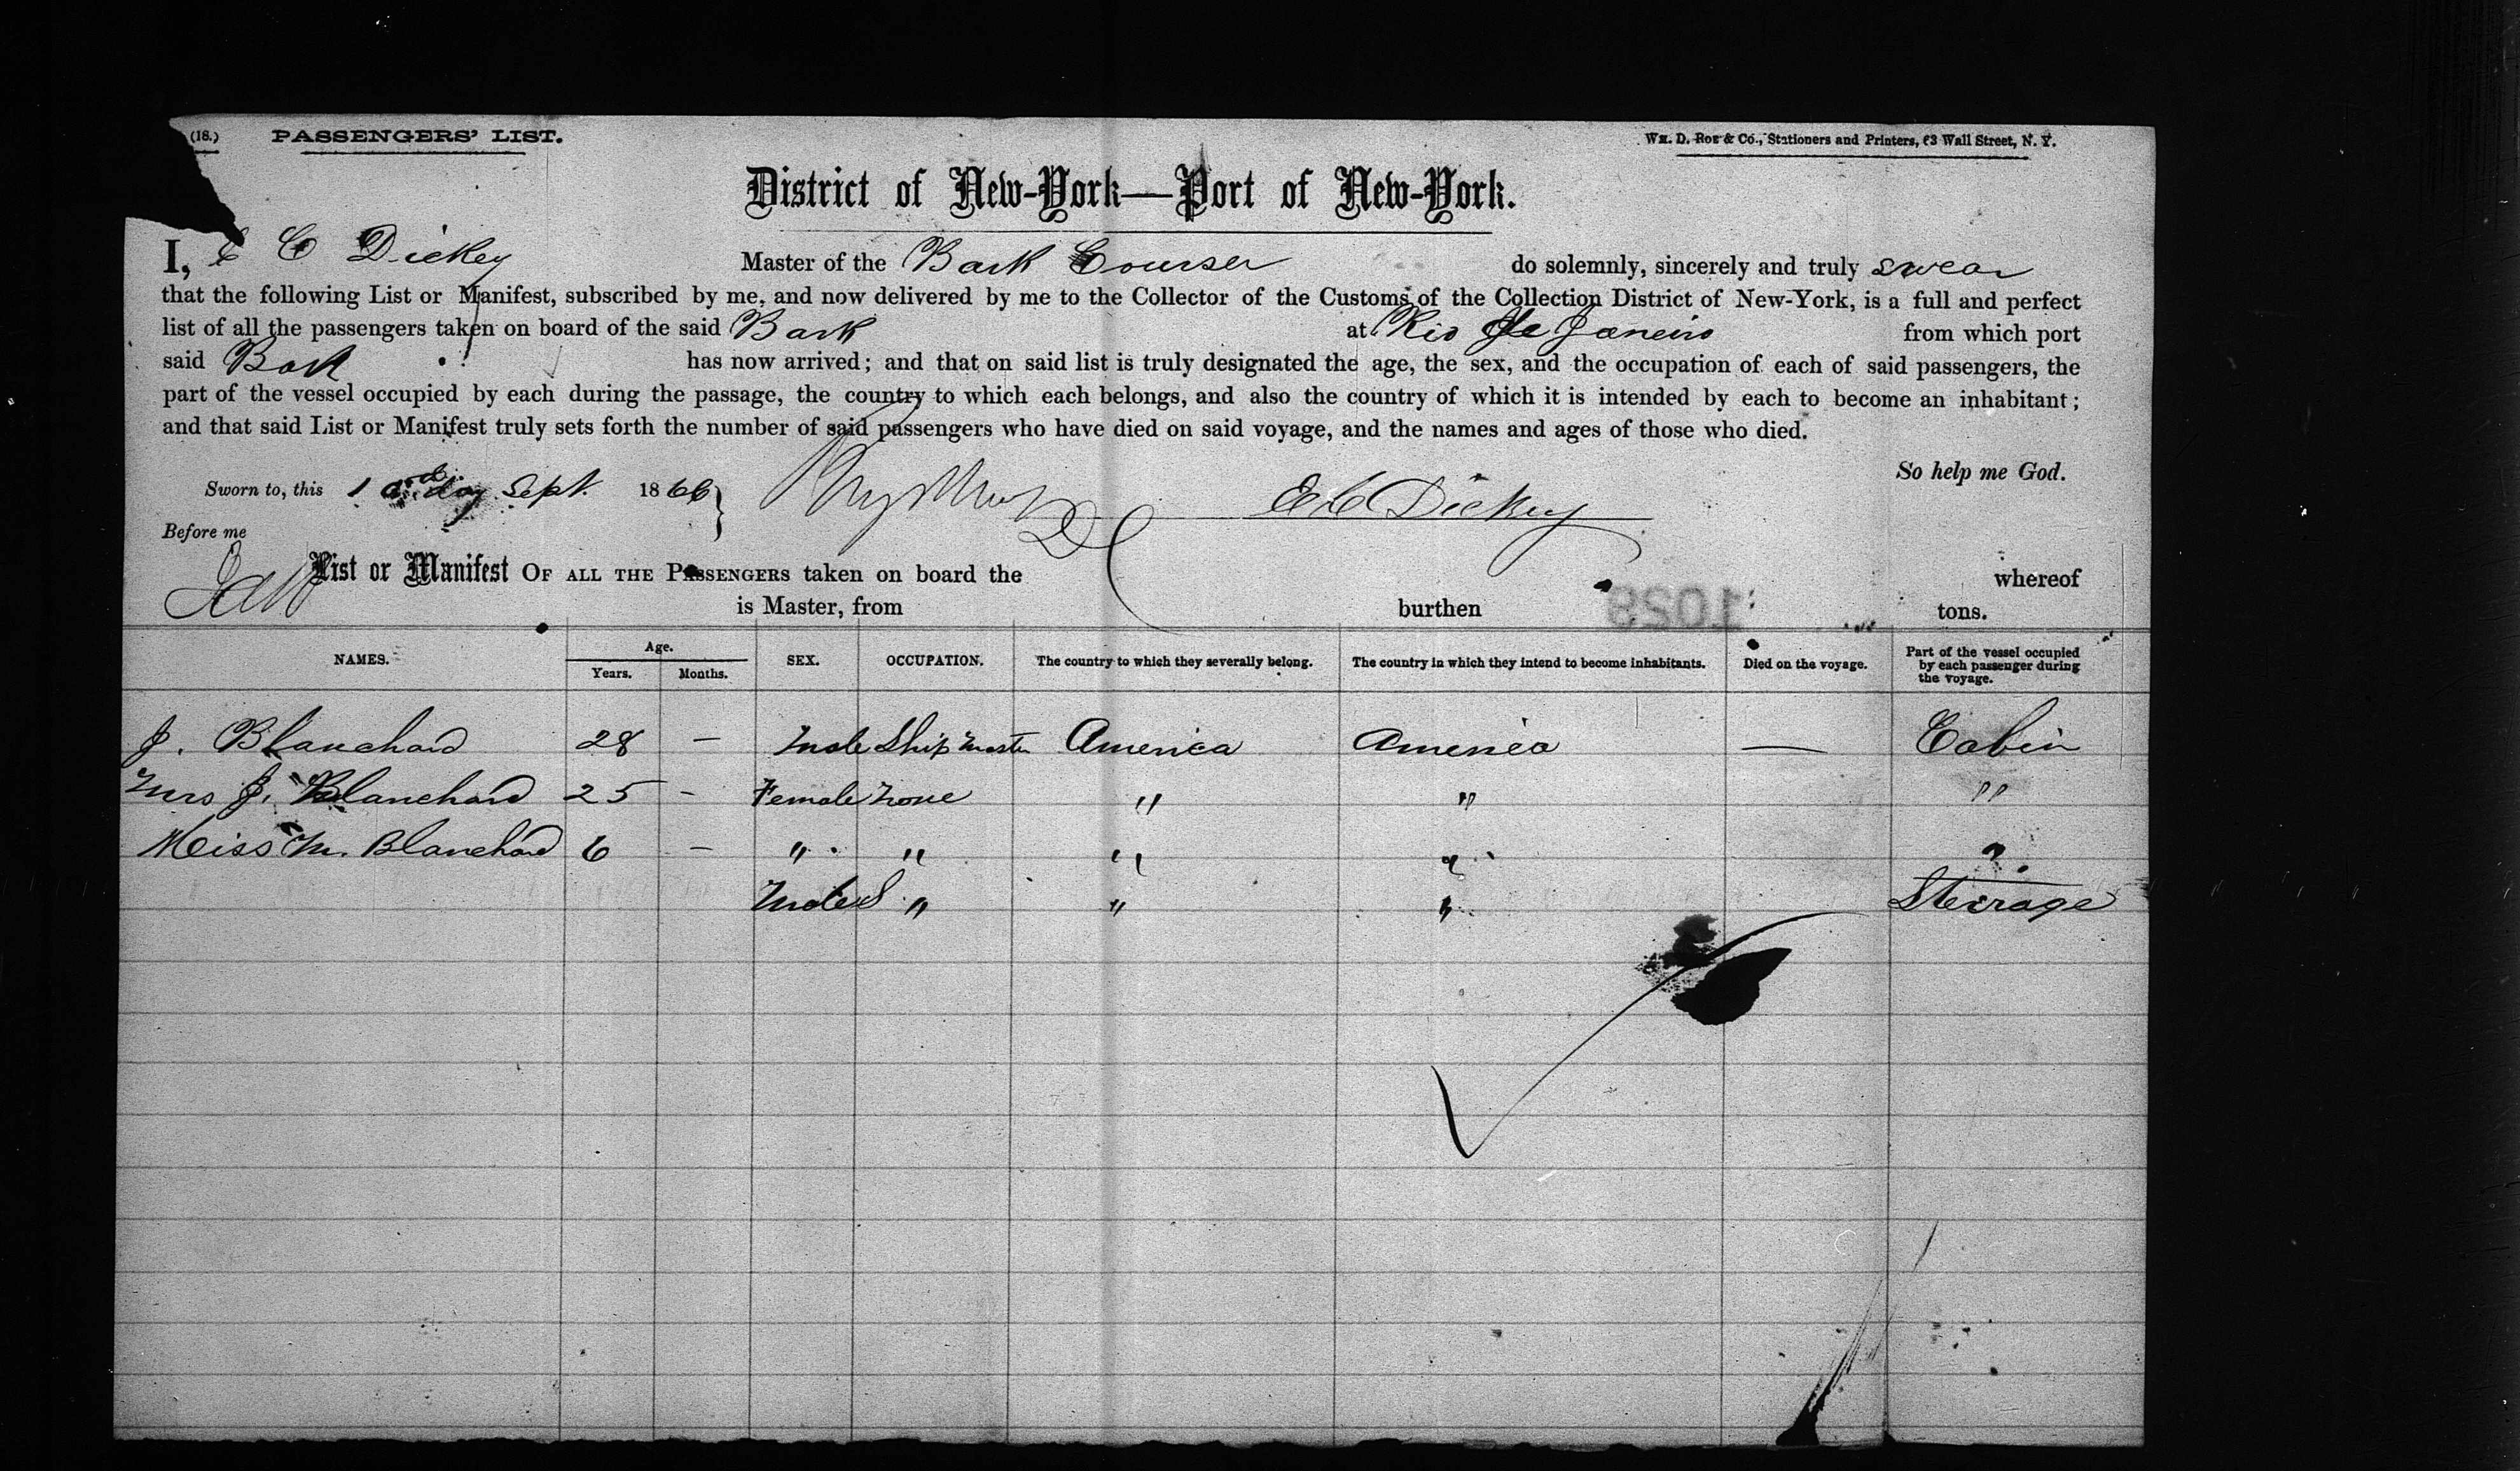 (18.) PASSENGERS' LIST. Wm. D. Roe & Co., Stationers and Printers, 63 Wall Street, N. Y.
District of New-York—Port of New-York.
I, E C Dickey Master of the Bark Courser do solemnly, sincerely and truly swear
that the following List or Manifest, subscribed by me, and now delivered by me to the Collector of the Customs of the Collection District of New-York, is a full and perfect
list of all the passengers taken on board of the said Bark at Rio de Janeiro from which port
said Bark has now arrived; and that on said list is truly designated the age, the sex, and the occupation of each of said passengers, the
part of the vessel occupied by each during the passage, the country to which each belongs, and also the country of which it is intended by each to become an inhabitant;
and that said List or Manifest truly sets forth the number of said passengers who have died on said voyage, and the names and ages of those who died.
So help me God.
Sworn to, this 1 day Sept. 1866 E C Dickey
Before me
List or Manifest OF ALL THE PASSENGERS taken on board the whereof
is Master, from burthen tons.
1028
NAMES. Age. Years. Months. SEX. OCCUPATION. The country to which they severally belong. The country in which they intend to become inhabitants. Died on the voyage. Part of the vessel occupied by each passenger during the voyage.
J. Blanchard 28 — Male Ship Master America America — Cabin
Mrs J. Blanchard 25 - Female None " " "
Miss M. Blanchard 6 — " " " " "
Male " " " Steerage